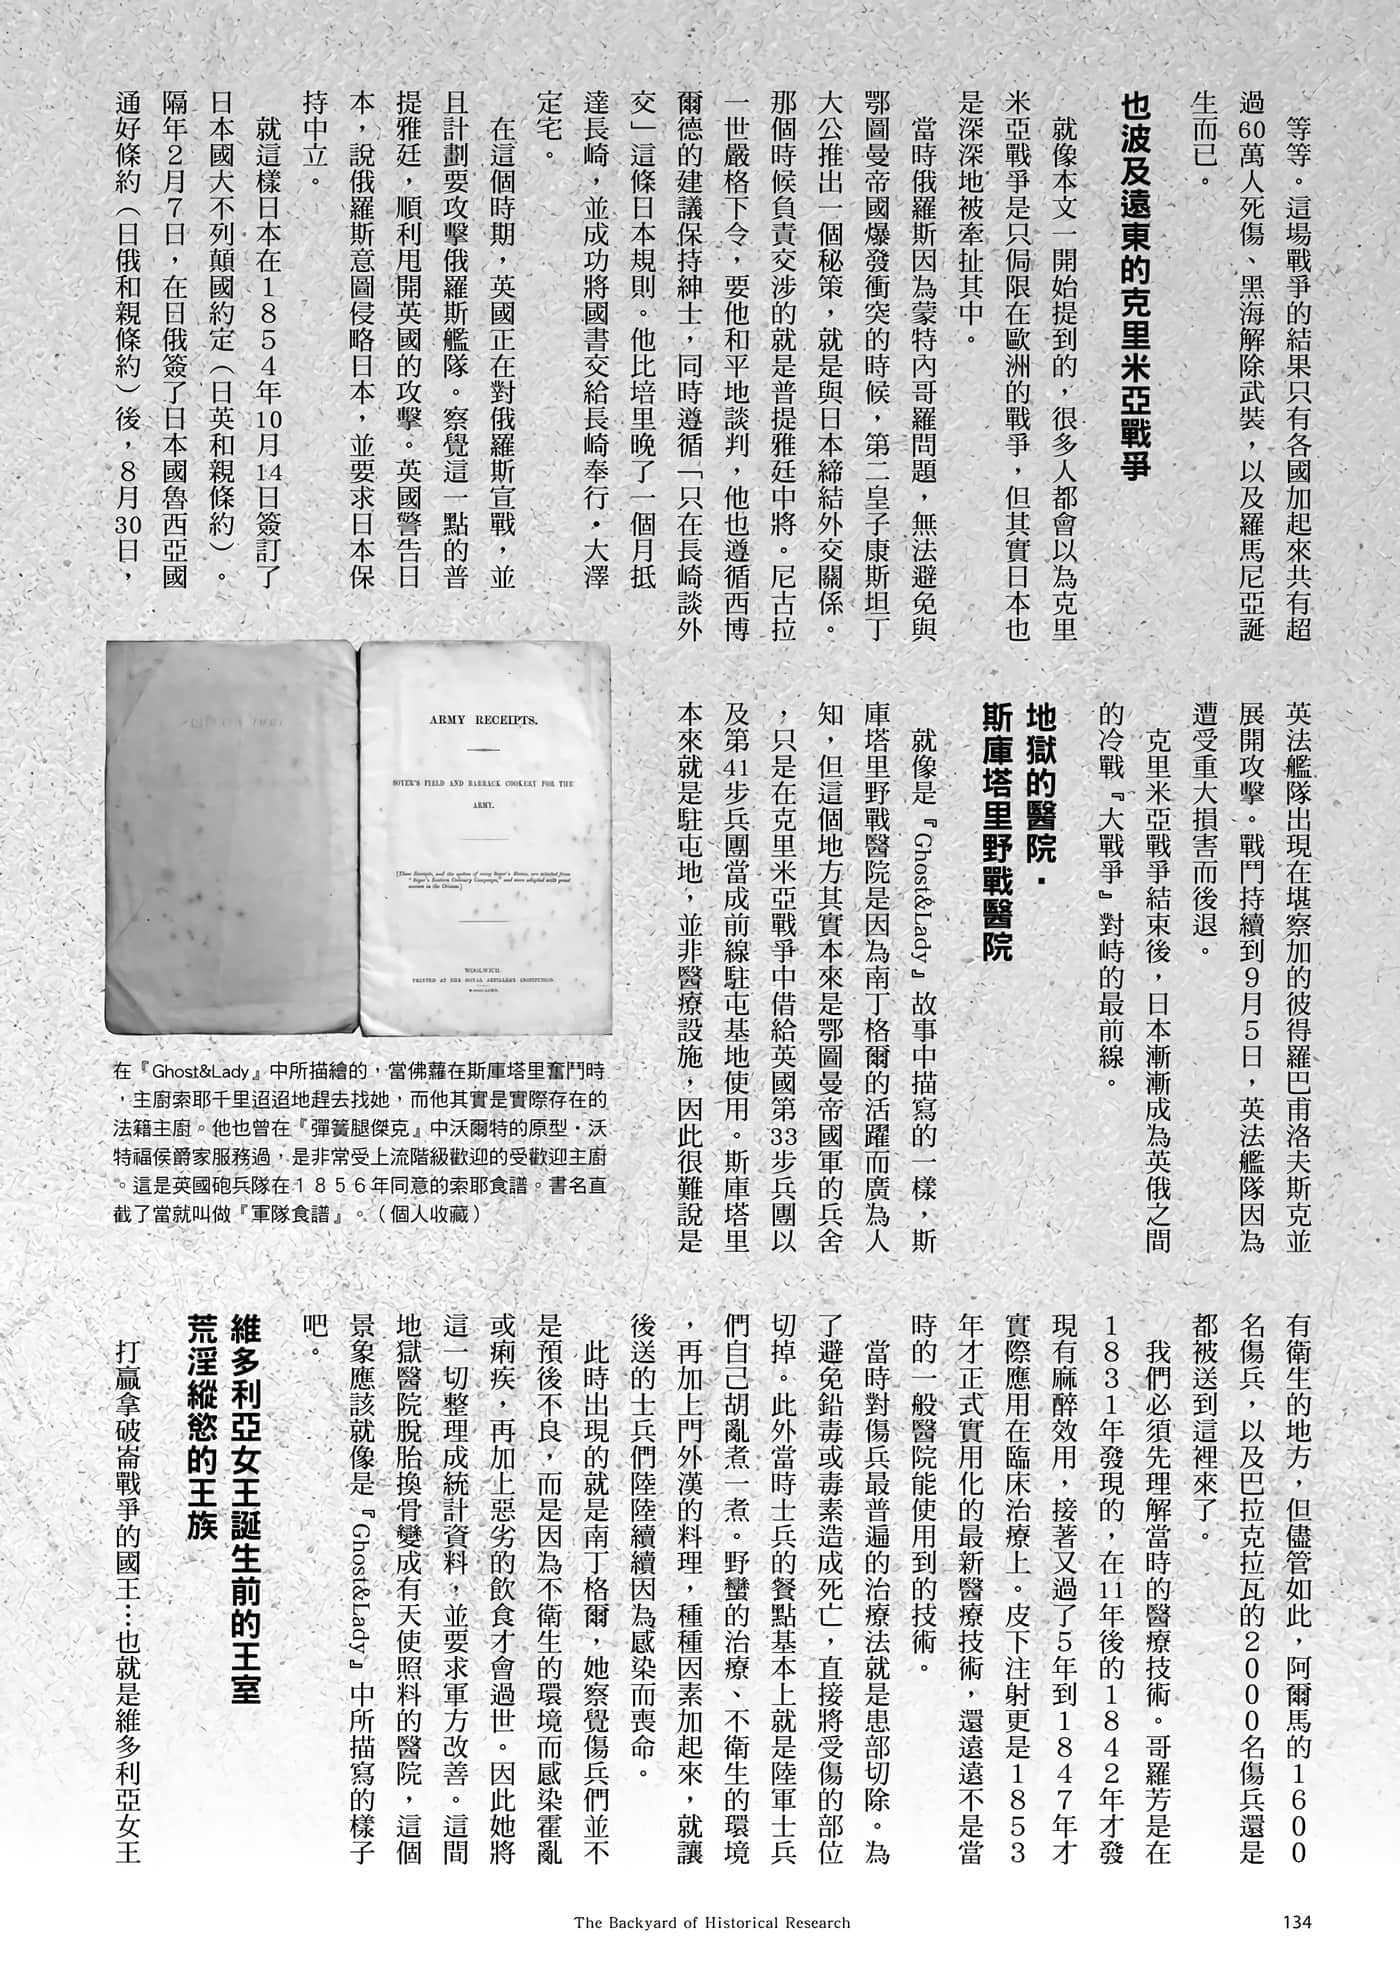 等等。這場戰爭的結果只有各國加起來共有超
過60萬人死傷、黑海解除武裝，以及羅馬尼亞誕
生而已。
也波及遠東的克里米亞戰爭
就像本文一開始提到的，很多人都會以為克里
米亞戰爭是只侷限在歐洲的戰爭，但其實日本也
是深深地被牽扯其中。
當時俄羅斯因為蒙特內哥羅問題，無法避免與
鄂圖曼帝國爆發衝突的時候，第二皇子康斯坦丁
大公推出一個秘策，就是與日本締結外交關係。
那個時候負責交涉的就是普提雅廷中將。尼古拉
一世嚴格下令，要他和平地談判，他也遵循西博
爾德的建議保持紳士，同時遵循「只在長崎談外
交」這條日本規則。他比培里晚了一個月抵
達長崎，並成功將國書交給長崎奉行・大澤
定宅。
在這個時期，英國正在對俄羅斯宣戰，並
且計劃要攻擊俄羅斯艦隊。察覺這一點的普
提雅廷，順利甩開英國的攻擊。英國警告日
本，說俄羅斯意圖侵略日本，並要求日本保
持中立。
就這樣日本在1854年10月14日簽訂了
日本國大不列顛國約定（日英和親條約）。
隔年2月7日，在日俄簽了日本國魯西亞國
通好條約（日俄和親條約）後，8月30日，
英法艦隊出現在堪察加的彼得羅巴甫洛夫斯克並
展開攻擊。戰鬥持續到9月5日，英法艦隊因為
遭受重大損害而後退。
克里米亞戰爭結束後，日本漸漸成為英俄之間
的冷戰『大戰爭』對峙的最前線。
地獄的醫院・
斯庫塔里野戰醫院
就像是『Ghost&Lady』故事中描寫的一樣，斯
庫塔里野戰醫院是因為南丁格爾的活躍而廣為人
知，但這個地方其實本來是鄂圖曼帝國軍的兵舍
，只是在克里米亞戰爭中借給英國第33步兵團以
及第41步兵團當成前線駐屯基地使用。斯庫塔里
本來就是駐屯地，並非醫療設施，因此很難說是
有衛生的地方，但儘管如此，阿爾馬的1600
名傷兵，以及巴拉克拉瓦的2000名傷兵還是
都被送到這裡來了。
我們必須先理解當時的醫療技術。哥羅芳是在
1831年發現的，在11年後的1842年才發
現有麻醉效用，接著又過了5年到1847年才
實際應用在臨床治療上。皮下注射更是1853
年才正式實用化的最新醫療技術，還遠遠不是當
時的一般醫院能使用到的技術。
當時對傷兵最普遍的治療法就是患部切除。為
了避免鉛毒或毒素造成死亡，直接將受傷的部位
切掉。此外當時士兵的餐點基本上就是陸軍士兵
們自己胡亂煮一煮。野蠻的治療、不衛生的環境
，再加上門外漢的料理，種種因素加起來，就讓
後送的士兵們陸陸續續因為感染而喪命。
此時出現的就是南丁格爾，她察覺傷兵們並不
是預後不良，而是因為不衛生的環境而感染霍亂
或痢疾，再加上惡劣的飲食才會過世。因此她將
這一切整理成統計資料，並要求軍方改善。這間
地獄醫院脫胎換骨變成有天使照料的醫院，這個
景象應該就像是『Ghost&Lady』中所描寫的樣子
吧。
維多利亞女王誕生前的王室
荒淫縱慾的王族
打贏拿破崙戰爭的國王…也就是維多利亞女王
ARMY RECEIPTS.
SOYER'S FIELD AND BARRACK COOKERY FOR THE
ARMY.
[These Receipts, and the system of many Soyer's Stoves, are selected from
"Soyer's Eastern Culinary Campaign," and were adopted with great
success in the Crimea.]
WOOLWICH.
PRINTED AT THE ROYAL ARTILLERY INSTITUTION.
在『Ghost&Lady』中所描繪的，當佛蘿在斯庫塔里奮鬥時
，主廚索耶千里迢迢地趕去找她，而他其實是實際存在的
法籍主廚。他也曾在『彈簧腿傑克』中沃爾特的原型・沃
特福侯爵家服務過，是非常受上流階級歡迎的受歡迎主廚
。這是英國砲兵隊在1856年同意的索耶食譜。書名直
截了當就叫做『軍隊食譜』。（個人收藏）
The Backyard of Historical Research
134